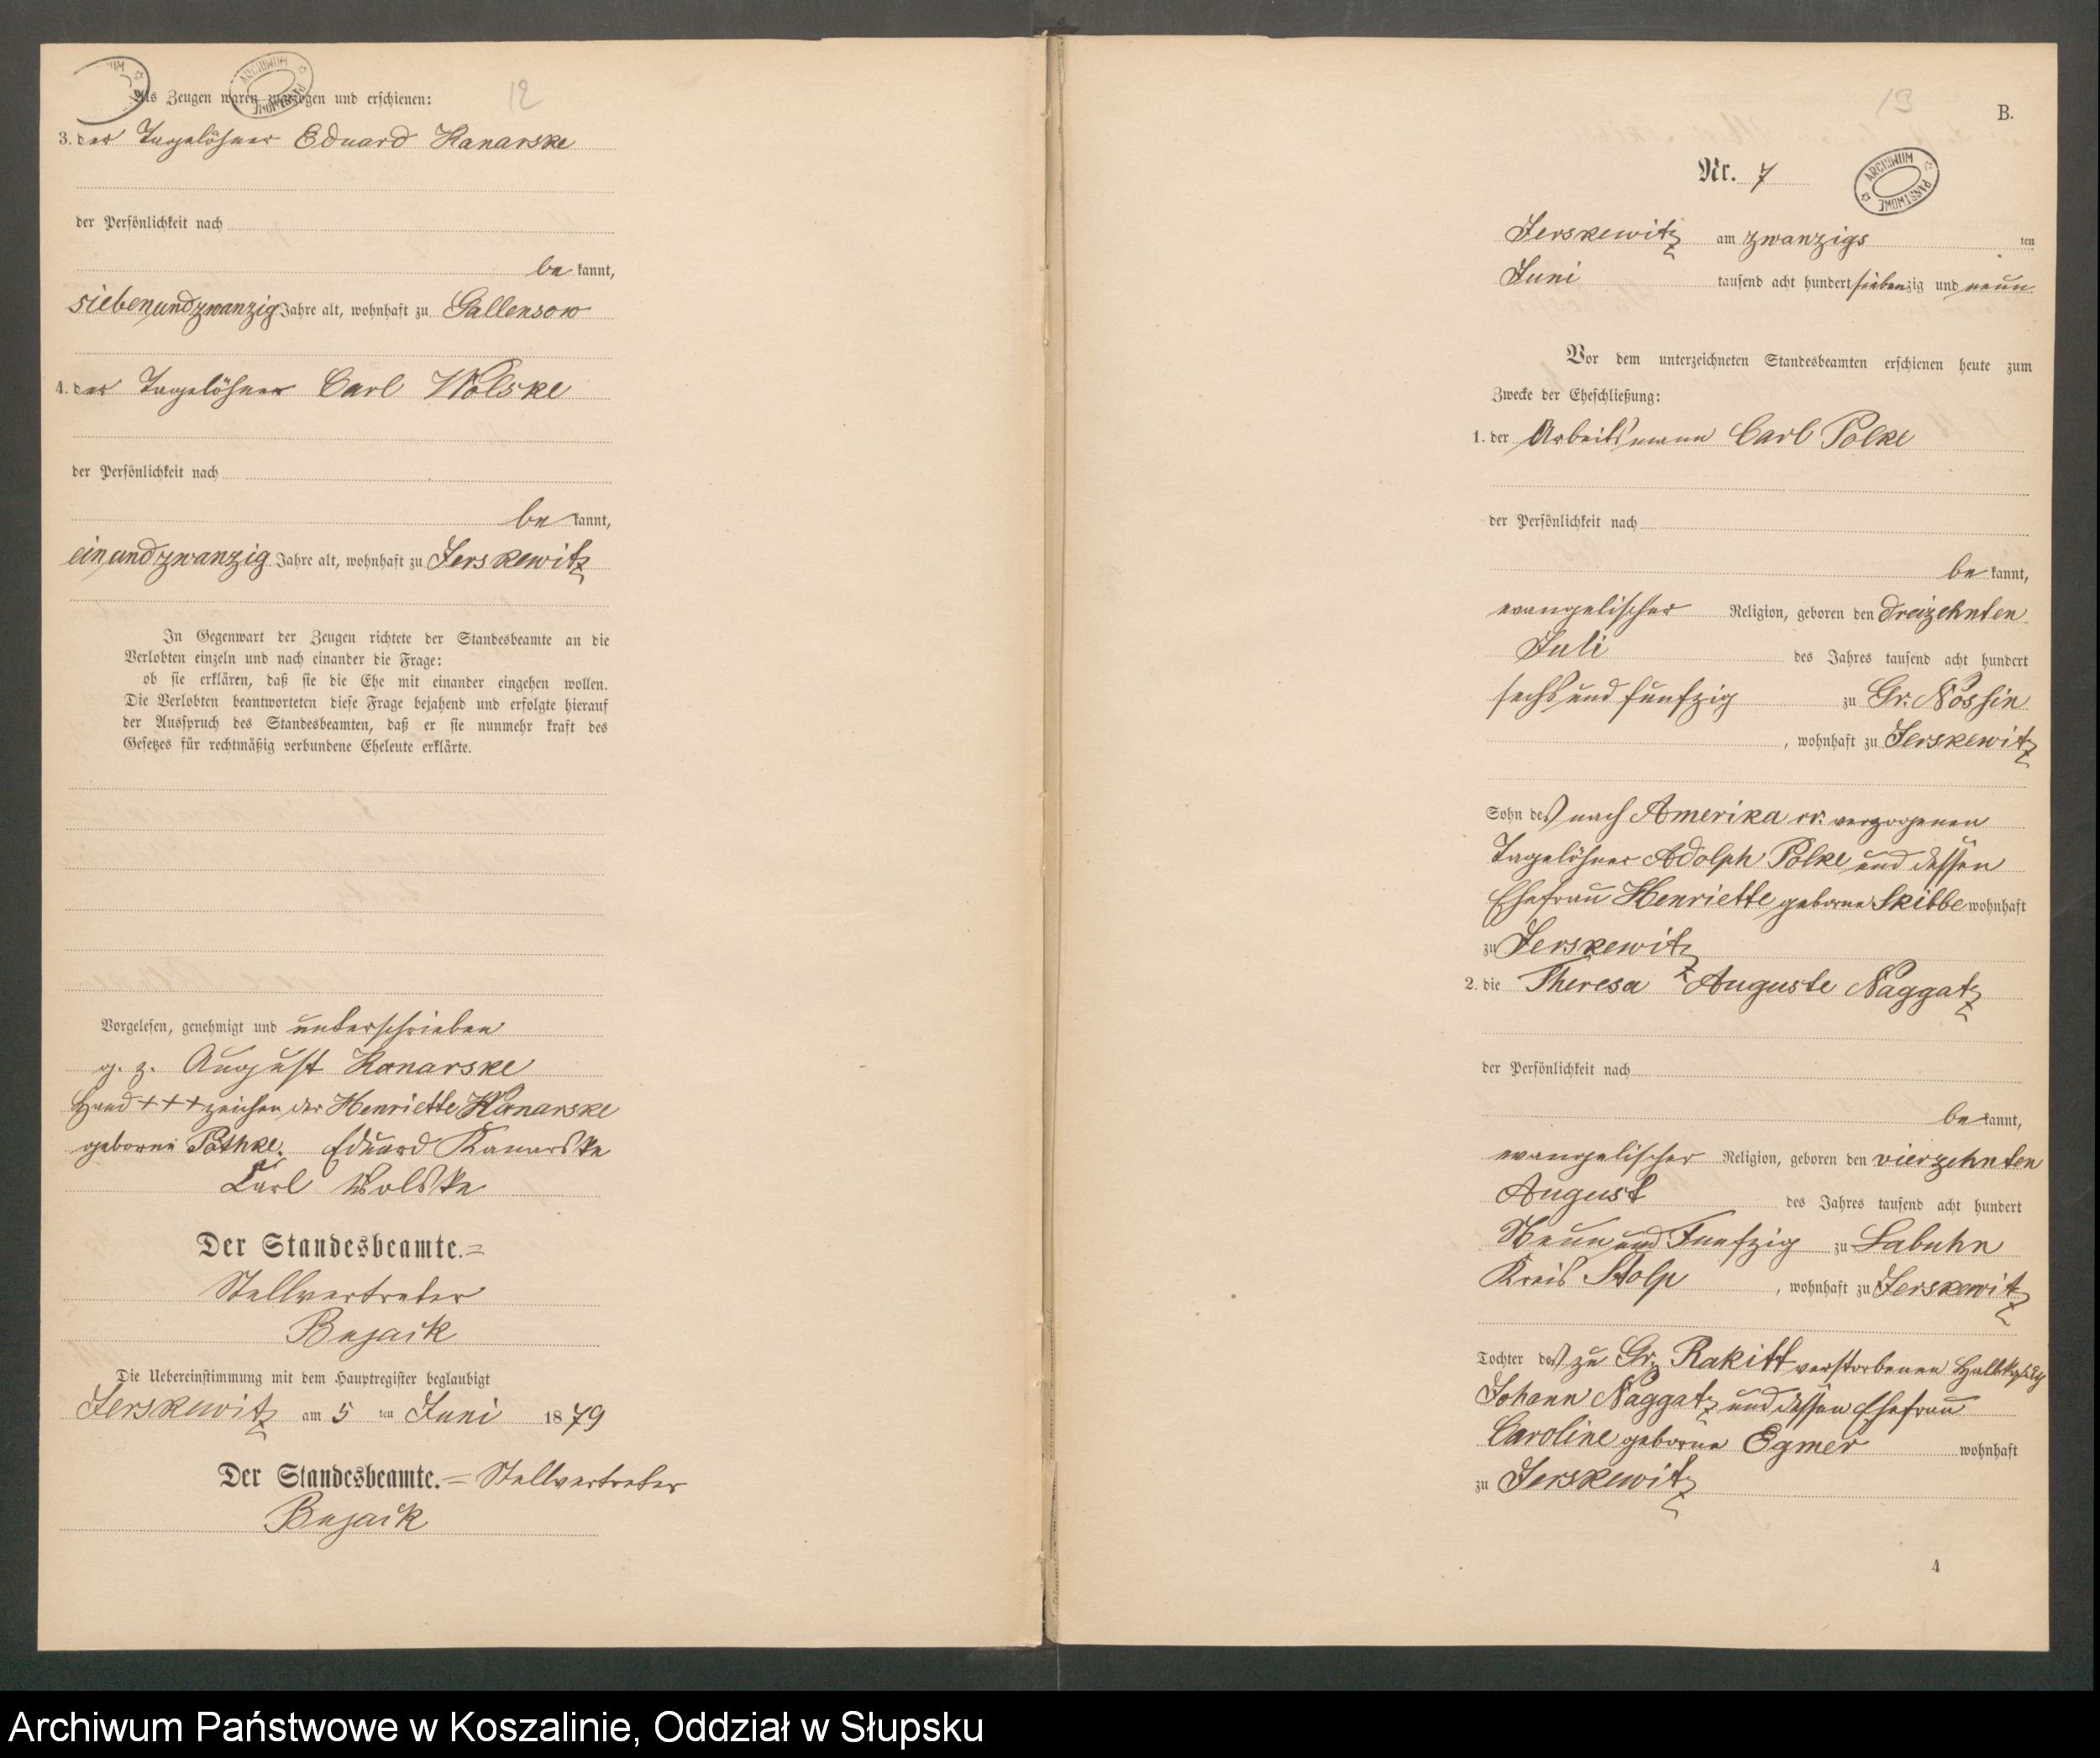 12
Als Zeugen waren zugezogen und erschienen:
3. der Tagelöhner Eduard Kanarske
der Persönlichkeit nach
be kannt,
siebenundzwanzig Jahre alt, wohnhaft zu Gallensow
4. der Tagelöhner Carl Wolske
der Persönlichkeit nach
be kannt,
einundzwanzig Jahre alt, wohnhaft zu Jerskewitz
In Gegenwart der Zeugen richtete der Standesbeamte an die
Verlobten einzeln und nach einander die Frage:
ob sie erklären, daß sie die Ehe mit einander eingehen wollen.
Die Verlobten beantworteten diese Frage bejahend und erfolgte hierauf
der Ausspruch des Standesbeamten, daß er sie nunmehr kraft des
Gesetzes für rechtmäßig verbundene Eheleute erklärte.
Vorgelesen, genehmigt und unterschrieben
g. z. August Kanarske
Hand +++ zeichen der Henriette Kanarske
geborne Pathke. Eduard Kanarske
Carl Wolske
Der Standesbeamte.=
Stellvertreter
Bujack
Die Uebereinstimmung mit dem Hauptregister beglaubigt
Jerskewitz am 5 ten Juni 1879
Der Standesbeamte.= Stellvertreter
Bujack
13
B.
Nr. 7
ARCHIWUM PAŃSTWOWE
Jerskewitz am zwanzigs ten
Juni tausend acht hundert siebenzig und neun
Vor dem unterzeichneten Standesbeamten erschienen heute zum
Zwecke der Eheschließung:
1. der Arbeitsmann Carl Polke
der Persönlichkeit nach
be kannt,
evangelischer Religion, geboren den dreizehnten
Juli des Jahres tausend acht hundert
sechs und fünfzig zu Gr. Nossin
, wohnhaft zu Jerskewitz
Sohn des nach Amerika verzogenen
Tagelöhner Adolph Polke und dessen
Ehefrau Henriette geborne Skibbe wohnhaft
zu Jerskewitz
2. die Theresa Auguste Naggatz
der Persönlichkeit nach
be kannt,
evangelischer Religion, geboren den vierzehnten
August des Jahres tausend acht hundert
Neun und Funfzig zu Labuhn
Kreis Stolp , wohnhaft zu Jerskewitz
Tochter des zu Gr. Rakitt verstorbenen
Johann Naggatz und dessen Ehefrau
Caroline geborne Egmer wohnhaft
zu Jerskewitz
4
Archiwum Państwowe w Koszalinie, Oddział w Słupsku